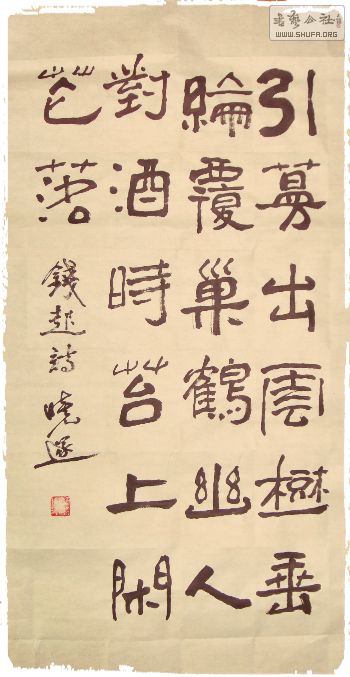 書藝公社
WWW.SHUFA.ORG
引蔓出雲樹垂
綸覆巢鶴幽人
對酒時苔上閑
花落
錢起詩 曉